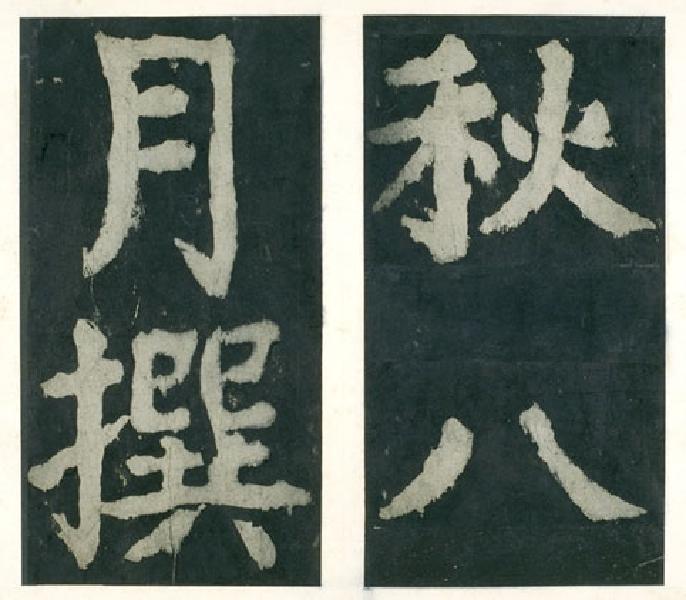 秋八
月撰